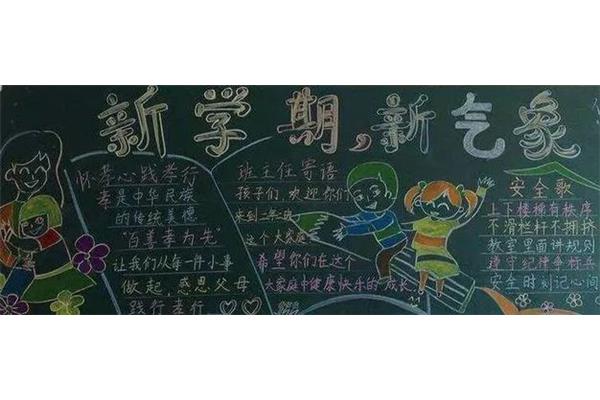 新学期,新气象
怀孝心践孝行
孝是中华民族
的传统美德
"百善孝为先"
让我们从每一件小事
做起,感恩父母
践行孝行
班主任寄语
孩子们,欢迎你们
来到二年班
这个大家庭
希望你们在这个
大家庭中健康快乐的成长.
安全歌
上下楼梯有秩序
不滑栏杆不拥挤
教室里面讲规则
遵守纪律争标兵
安全时刻记心间